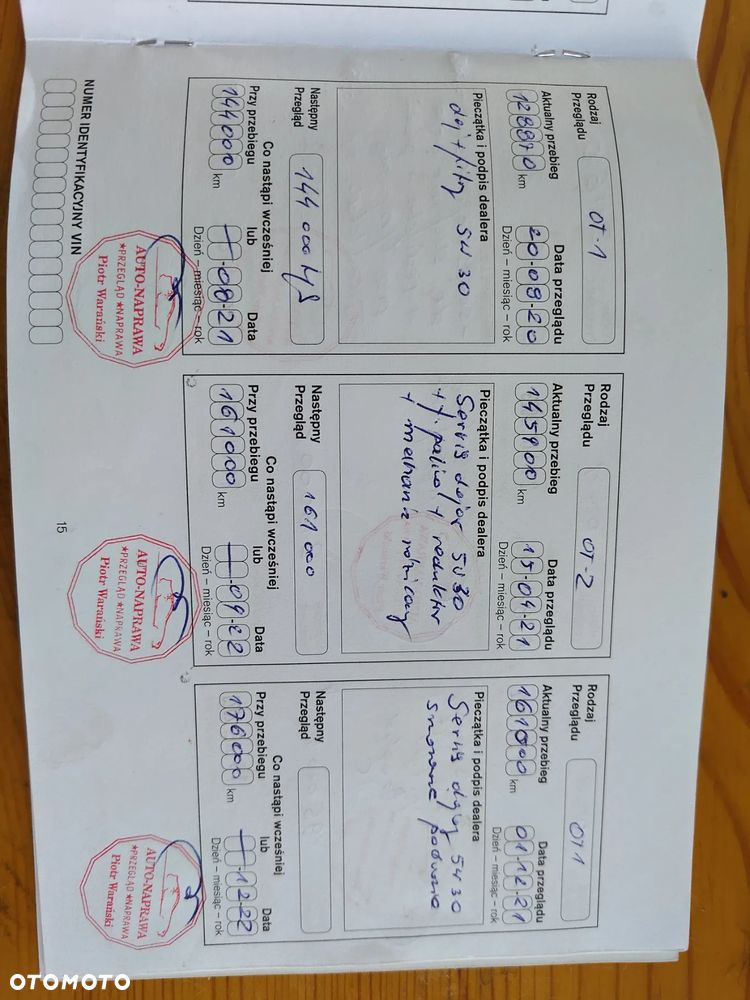 Rodzaj
Przeglądu
OT-1
Aktualny przebieg
128840 km
Data przeglądu
20-08-20
Dzień – miesiąc – rok
Pieczątka i podpis dealera
olej + filtry 5W30
Następny
Przegląd
144 000
Co nastąpi wcześniej
Przy przebiegu
lub
Data
144000 km
08-21
Dzień – miesiąc – rok
AUTO-NAPRAWA
★PRZEGLĄD ★NAPRAWA
Piotr Warański
NUMER IDENTYFIKACYJNY VIN
Rodzaj
Przeglądu
OT-2
Aktualny przebieg
145900 km
Data przeglądu
15-04-21
Dzień – miesiąc – rok
Pieczątka i podpis dealera
Serwis olejów 5W30
+ f. paliwa + reduktor
+ mechanizm różnicowy
Następny
Przegląd
161 000
Co nastąpi wcześniej
Przy przebiegu
lub
Data
161000 km
09-22
Dzień – miesiąc – rok
AUTO-NAPRAWA
★PRZEGLĄD ★NAPRAWA
Piotr Warański
15
Rodzaj
Przeglądu
OT1
Aktualny przebieg
161000 km
Data przeglądu
01-12-21
Dzień – miesiąc – rok
Pieczątka i podpis dealera
Serwis olejowy 5W30
smarowanie
Następny
Przegląd
Co nastąpi wcześniej
Przy przebiegu
lub
Data
176000 km
12-22
Dzień – miesiąc – rok
AUTO-NAPRAWA
★PRZEGLĄD ★NAPRAWA
Piotr Warański
OTOMOTO